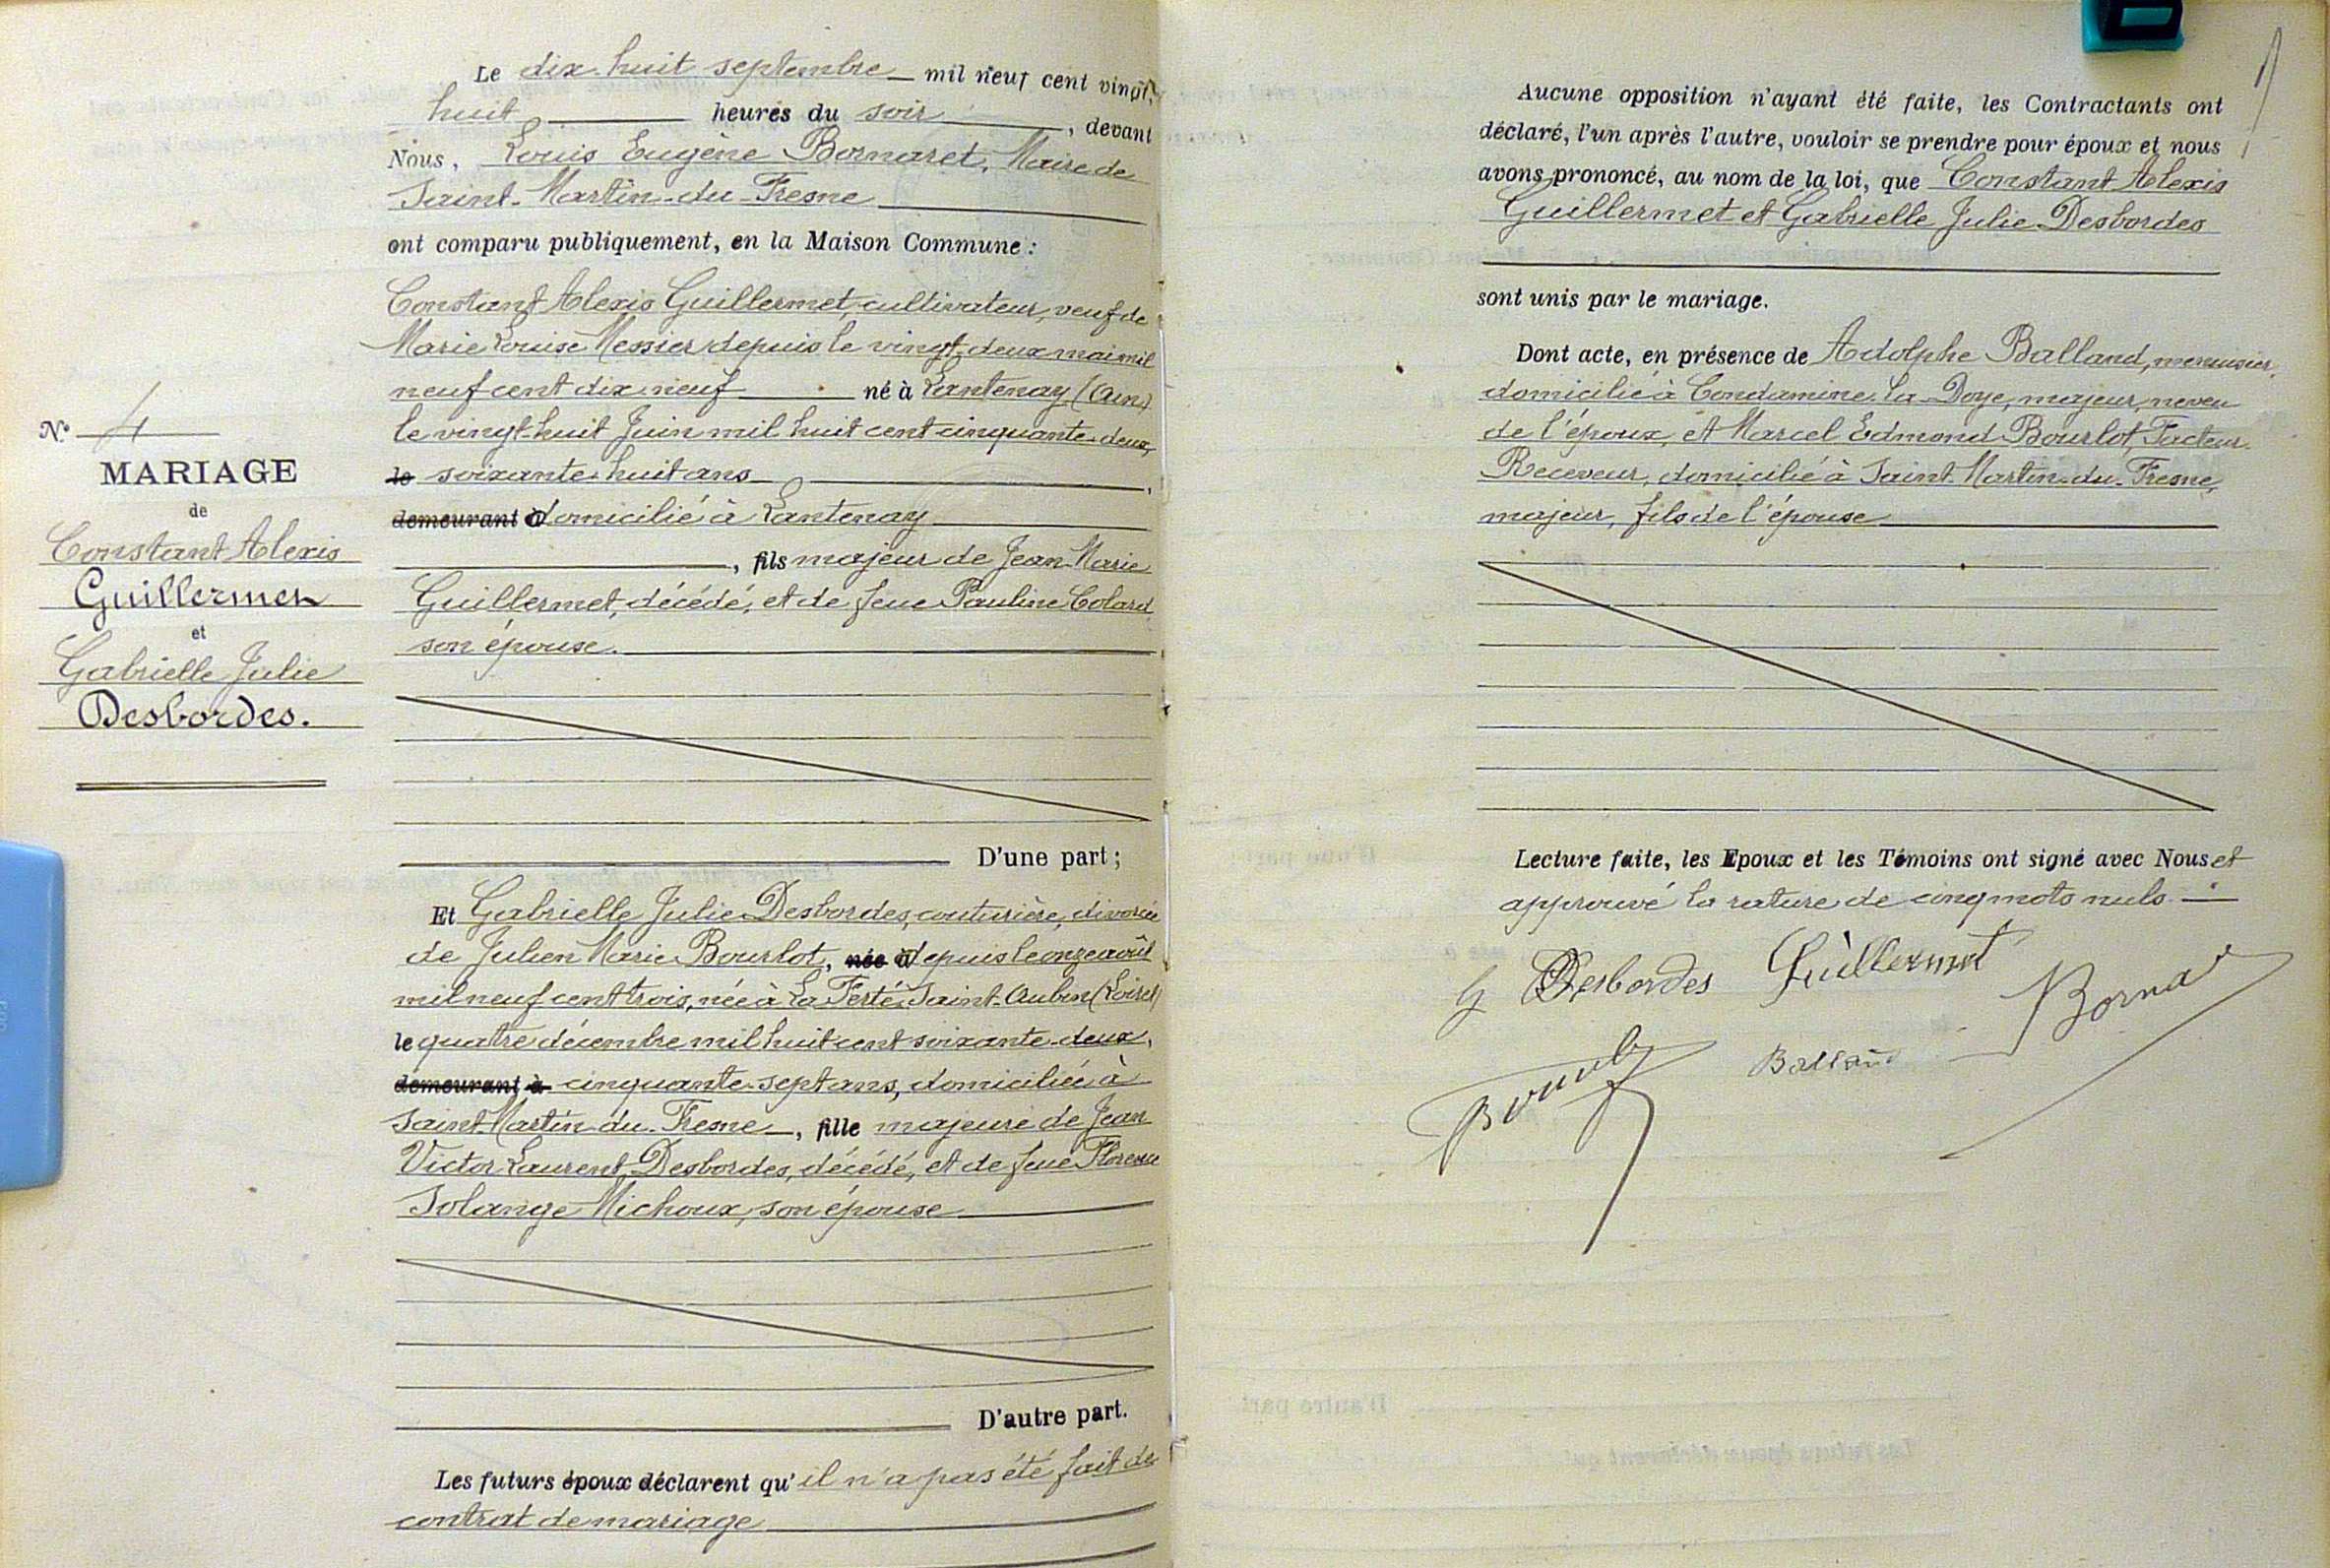 Le dix-huit septembre mil neuf cent vingt,
huit heures du soir, devant
Nous, Louis Eugène Bornaret, Maire de
Saint-Martin-du-Fresne
ont comparu publiquement, en la Maison Commune :
Constant Alexis Guillermet, cultivateur, veuf de
Marie Louise Messier depuis le vingt-deux mai mil
neuf cent dix neuf né à Lantenay (Ain)
le vingt-huit Juin mil huit cent cinquante-deux,
le soixante-huit ans,
demeurant à domicilié à Lantenay
, fils majeur de Jean-Marie
Guillermet, décédé, et de feue Pauline Colard
son épouse.
N° 4
MARIAGE
de
Constant Alexis
Guillermet
et
Gabrielle Julie
Desbordes.
D'une part ;
Et Gabrielle Julie Desbordes, couturière, divorcée
de Julien Marie Bourlot, née à depuis le onze août
mil neuf cent trois, née à La Ferté-Saint-Aubin (Loiret)
le quatre décembre mil huit cent soixante-deux,
demeurant à cinquante-sept ans, domiciliée à
Saint-Martin-du-Fresne, fille majeure de Jean
Victor Laurent Desbordes, décédé, et de feue Florence
Solange Michoux, son épouse
D'autre part.
Les futurs époux déclarent qu'il n'a pas été fait de
contrat de mariage
Aucune opposition n'ayant été faite, les Contractants ont
déclaré, l'un après l'autre, vouloir se prendre pour époux et nous
avons prononcé, au nom de la loi, que Constant Alexis
Guillermet et Gabrielle Julie Desbordes
sont unis par le mariage.
Dont acte, en présence de Adolphe Balland, menuisier,
domicilié à Condamine-la-Doye, majeur, neveu
de l'époux, et Marcel Edmond Bourlot, Facteur-
Receveur, domicilié à Saint-Martin-du-Fresne,
majeur, fils de l'épouse
Lecture faite, les Epoux et les Témoins ont signé avec Nous et
approuvé la rature de cinq mots nuls.
G Desbordes Guillermet
Balland